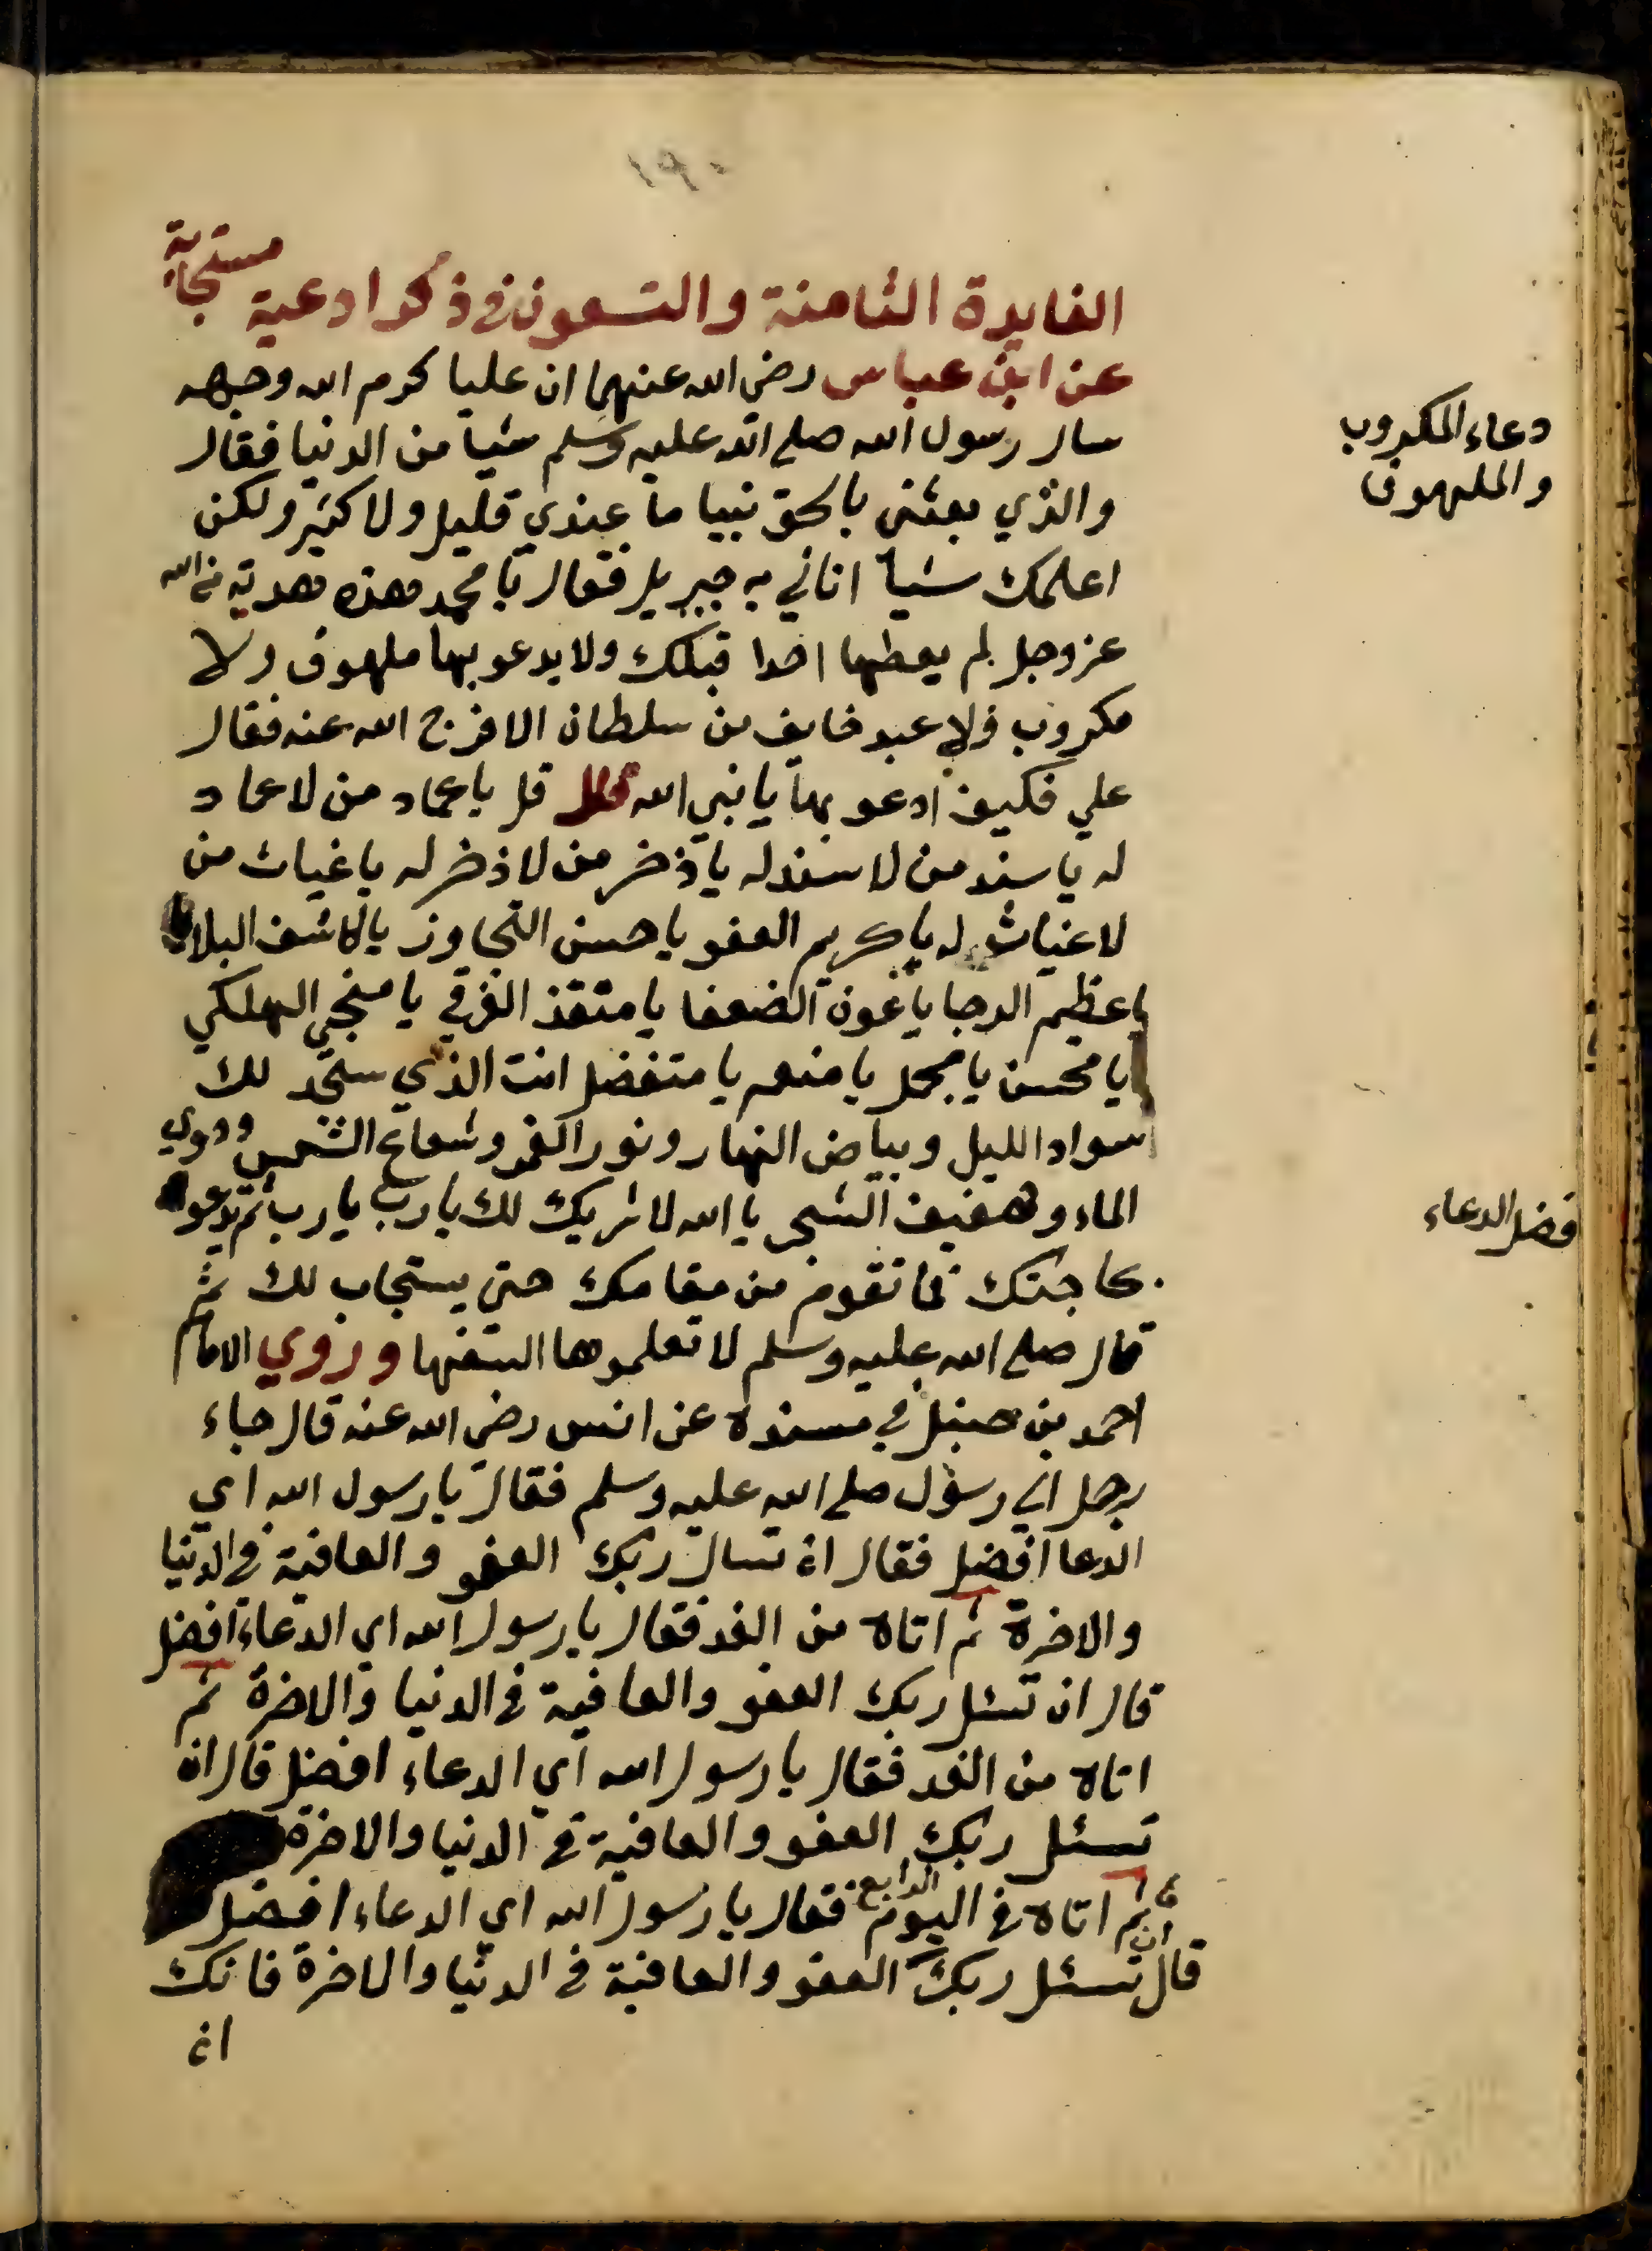 ١٩٠
الفايدة الثامنة والتسعون في ذكر ادعية مستجابة
عن ابن عباس رضي الله عنهما ان عليا كرم الله وجهه
سال رسول الله صلى الله عليه وسلم شيا من الدنيا فقال
دعاء المكروب
والملهوف
والذي بعثني بالحق نبيا ما عندي قليل ولا كثير ولكن
اعلمك شيا اتاني به جبريل فقال يا محمد هذه هدية من الله
عز وجل لم يعطها احدا قبلك ولا يدعو بها ملهوف ولا
مكروب ولا عبد خايف من سلطان الا فرج الله عنه فقال
علي فكيف ادعو بها يا نبي الله قال قل يا عماد من لا عماد
له يا سند من لا سند له يا ذخر من لا ذخر له يا غياث من
لا غياث له يا كريم العفو يا حسن التجاوز يا كاشف البلاء
يا عظيم الرجا يا عون الضعفا يا منقذ الغرقي يا منجي الهلكي
يا محسن يا مجمل يا منعم يا متفضل انت الذي سجد لك
سواد الليل وبياض النهار ونور القمر وشعاع الشمس ودوي
الماء وحفيف الشجر يا الله لا شريك لك يا رب يا رب ثم تدعو
فضل الدعاء
بحاجتك فما تقوم من مقامك حتى يستجاب لك ثم
قال صلى الله عليه وسلم لا تعلموها السفها وروي الامام
احمد بن حنبل في مسنده عن انس رضي الله عنه قال جاء
رجل الي رسول صلى الله عليه وسلم فقال يا رسول الله اي
الدعا افضل فقال ان تسال ربك العفو والعافية في الدنيا
والاخرة ثم اتاه من الغد فقال يا رسول الله اي الدعاء افضل
قال ان تسئل ربك العفو والعافية في الدنيا والاخرة ثم
اتاه من الغد فقال يا رسول الله اي الدعاء افضل قال ان
تسئل ربك العفو والعافية في الدنيا والاخرة
ثم اتاه في اليوم الرابع فقال يا رسول الله اي الدعاء افضل
قال ان تسئل ربك العفو والعافية في الدنيا والاخرة فانك
ان